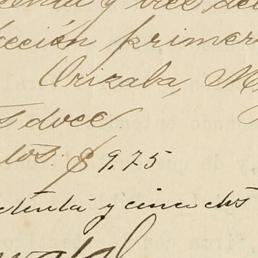 y vice
cción primer
Orizaba, M
s doce
los $ 9.75
etenta y cinco cts